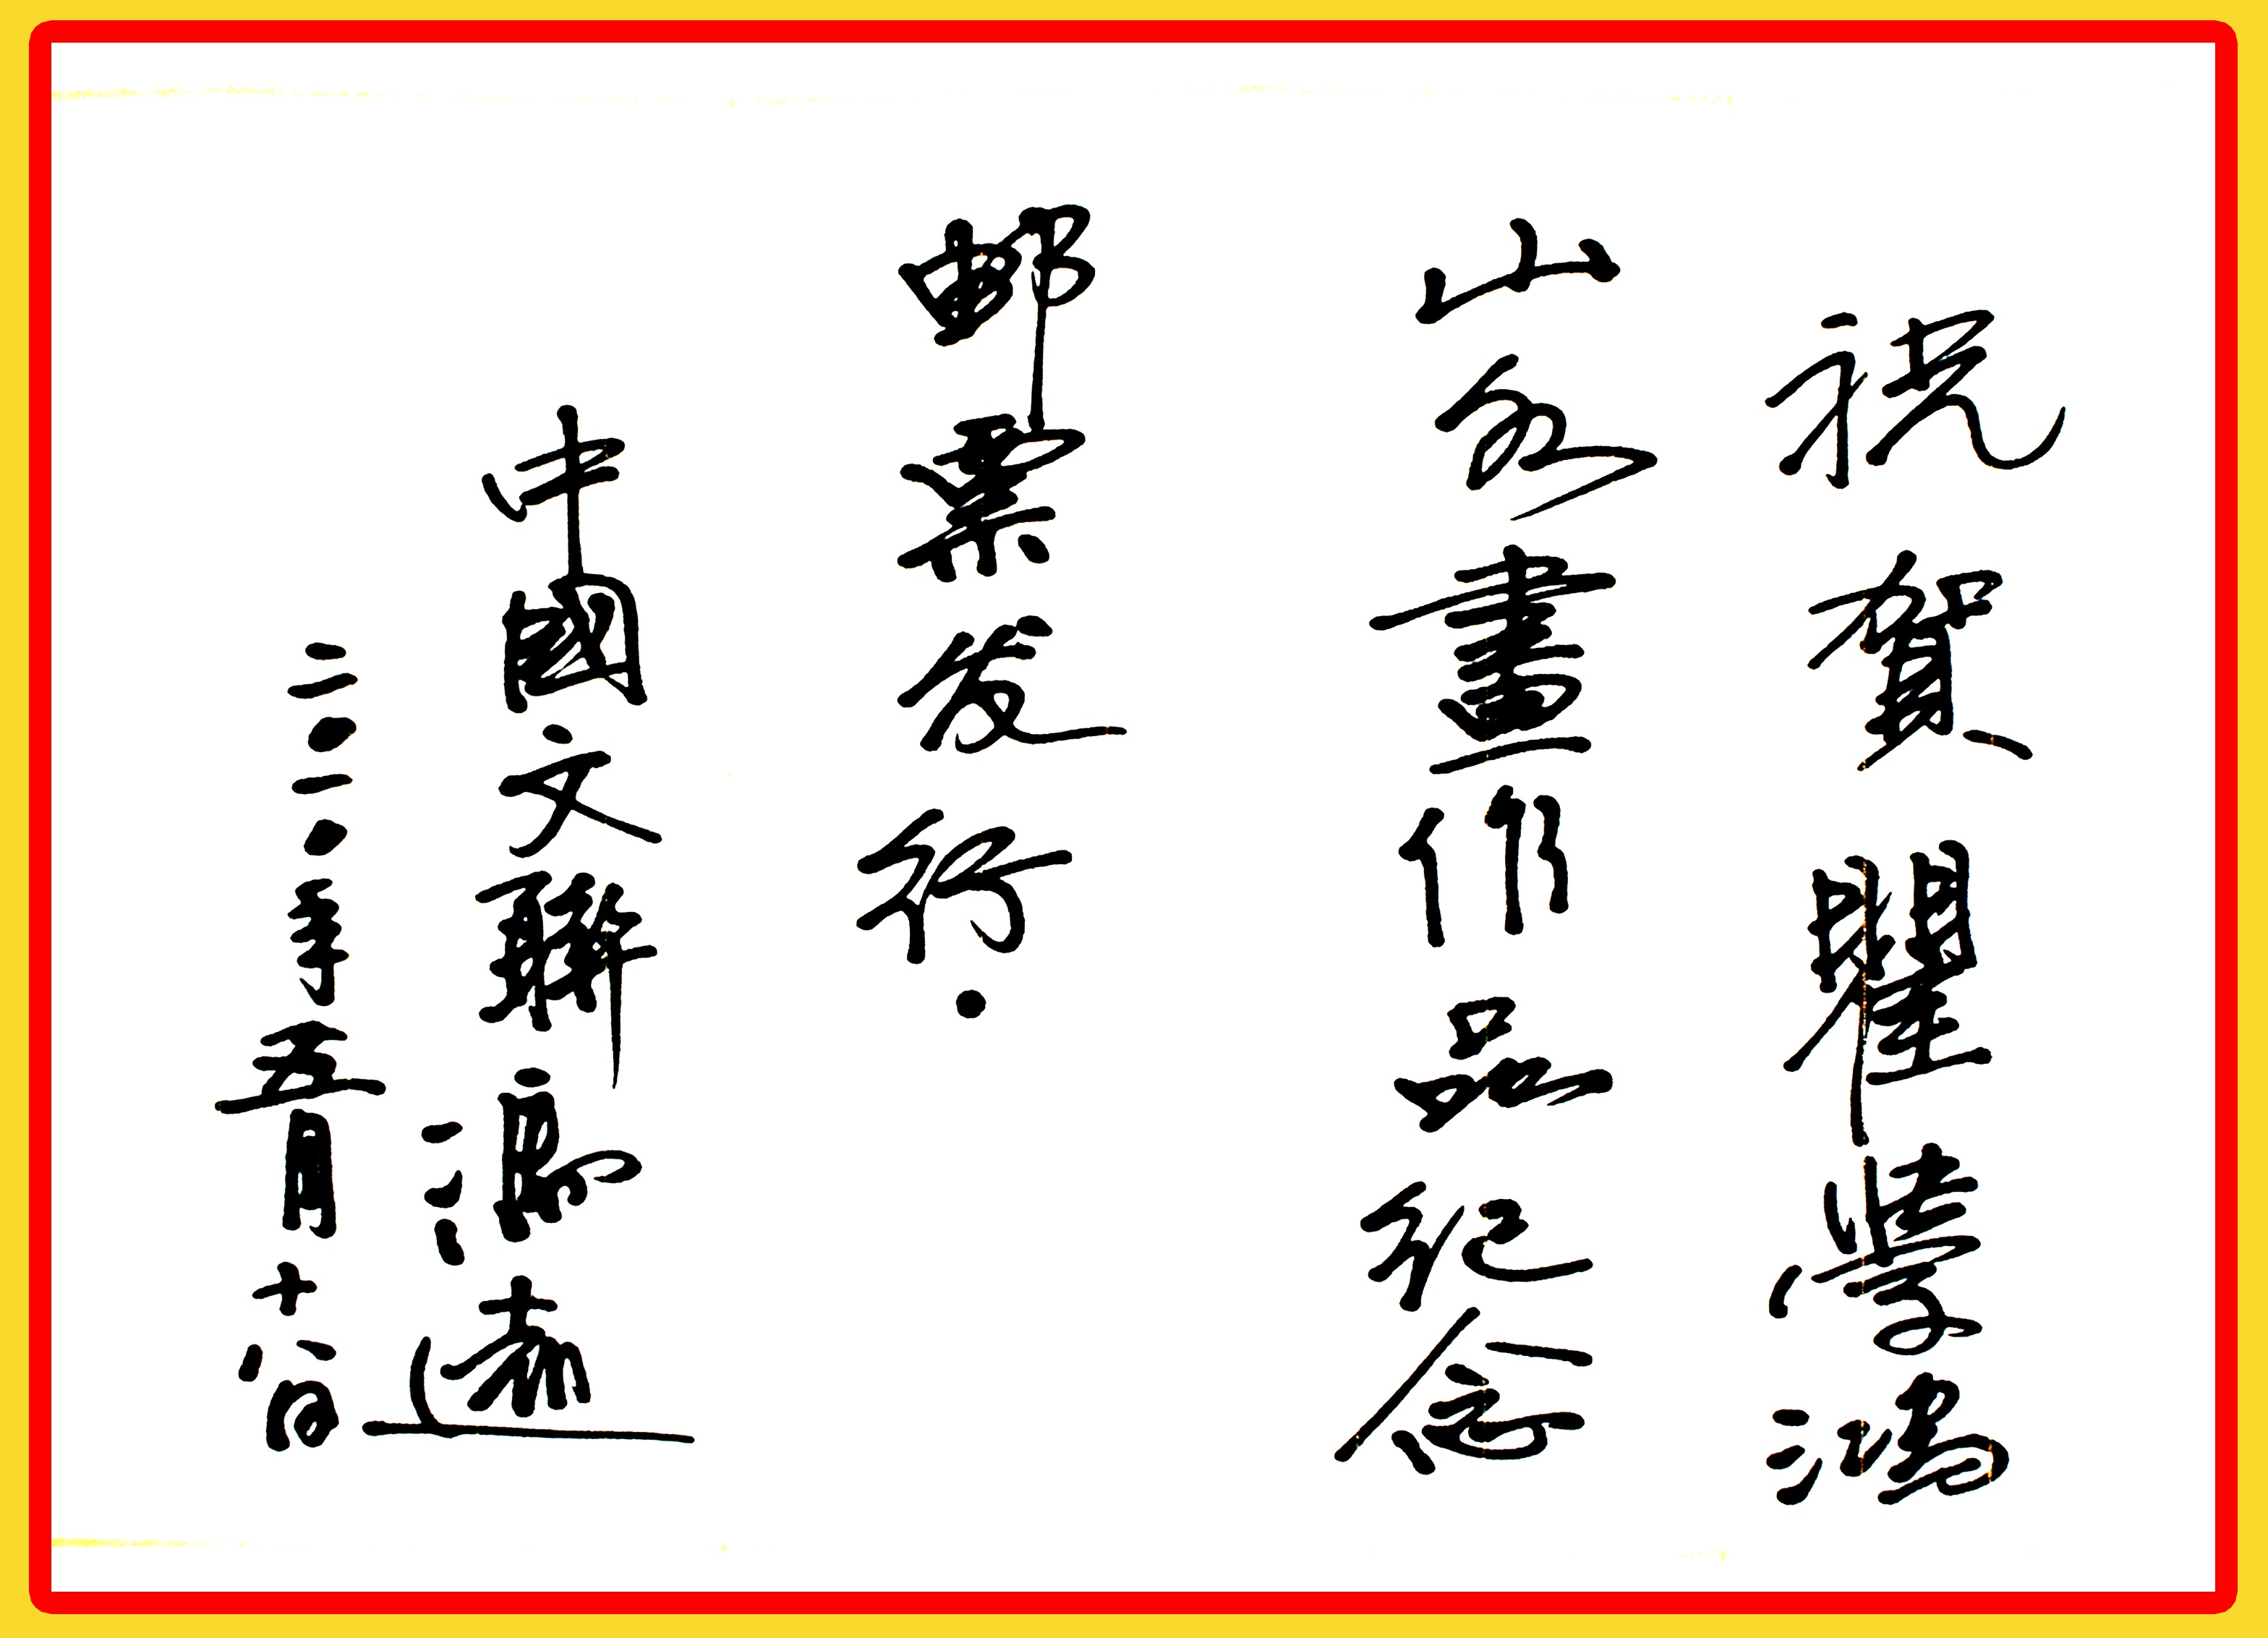 祝賀瞿學鴻
山水畫作品纪念
邮票发行.
中國文聯馮遠
二〇一〇年五月十八日